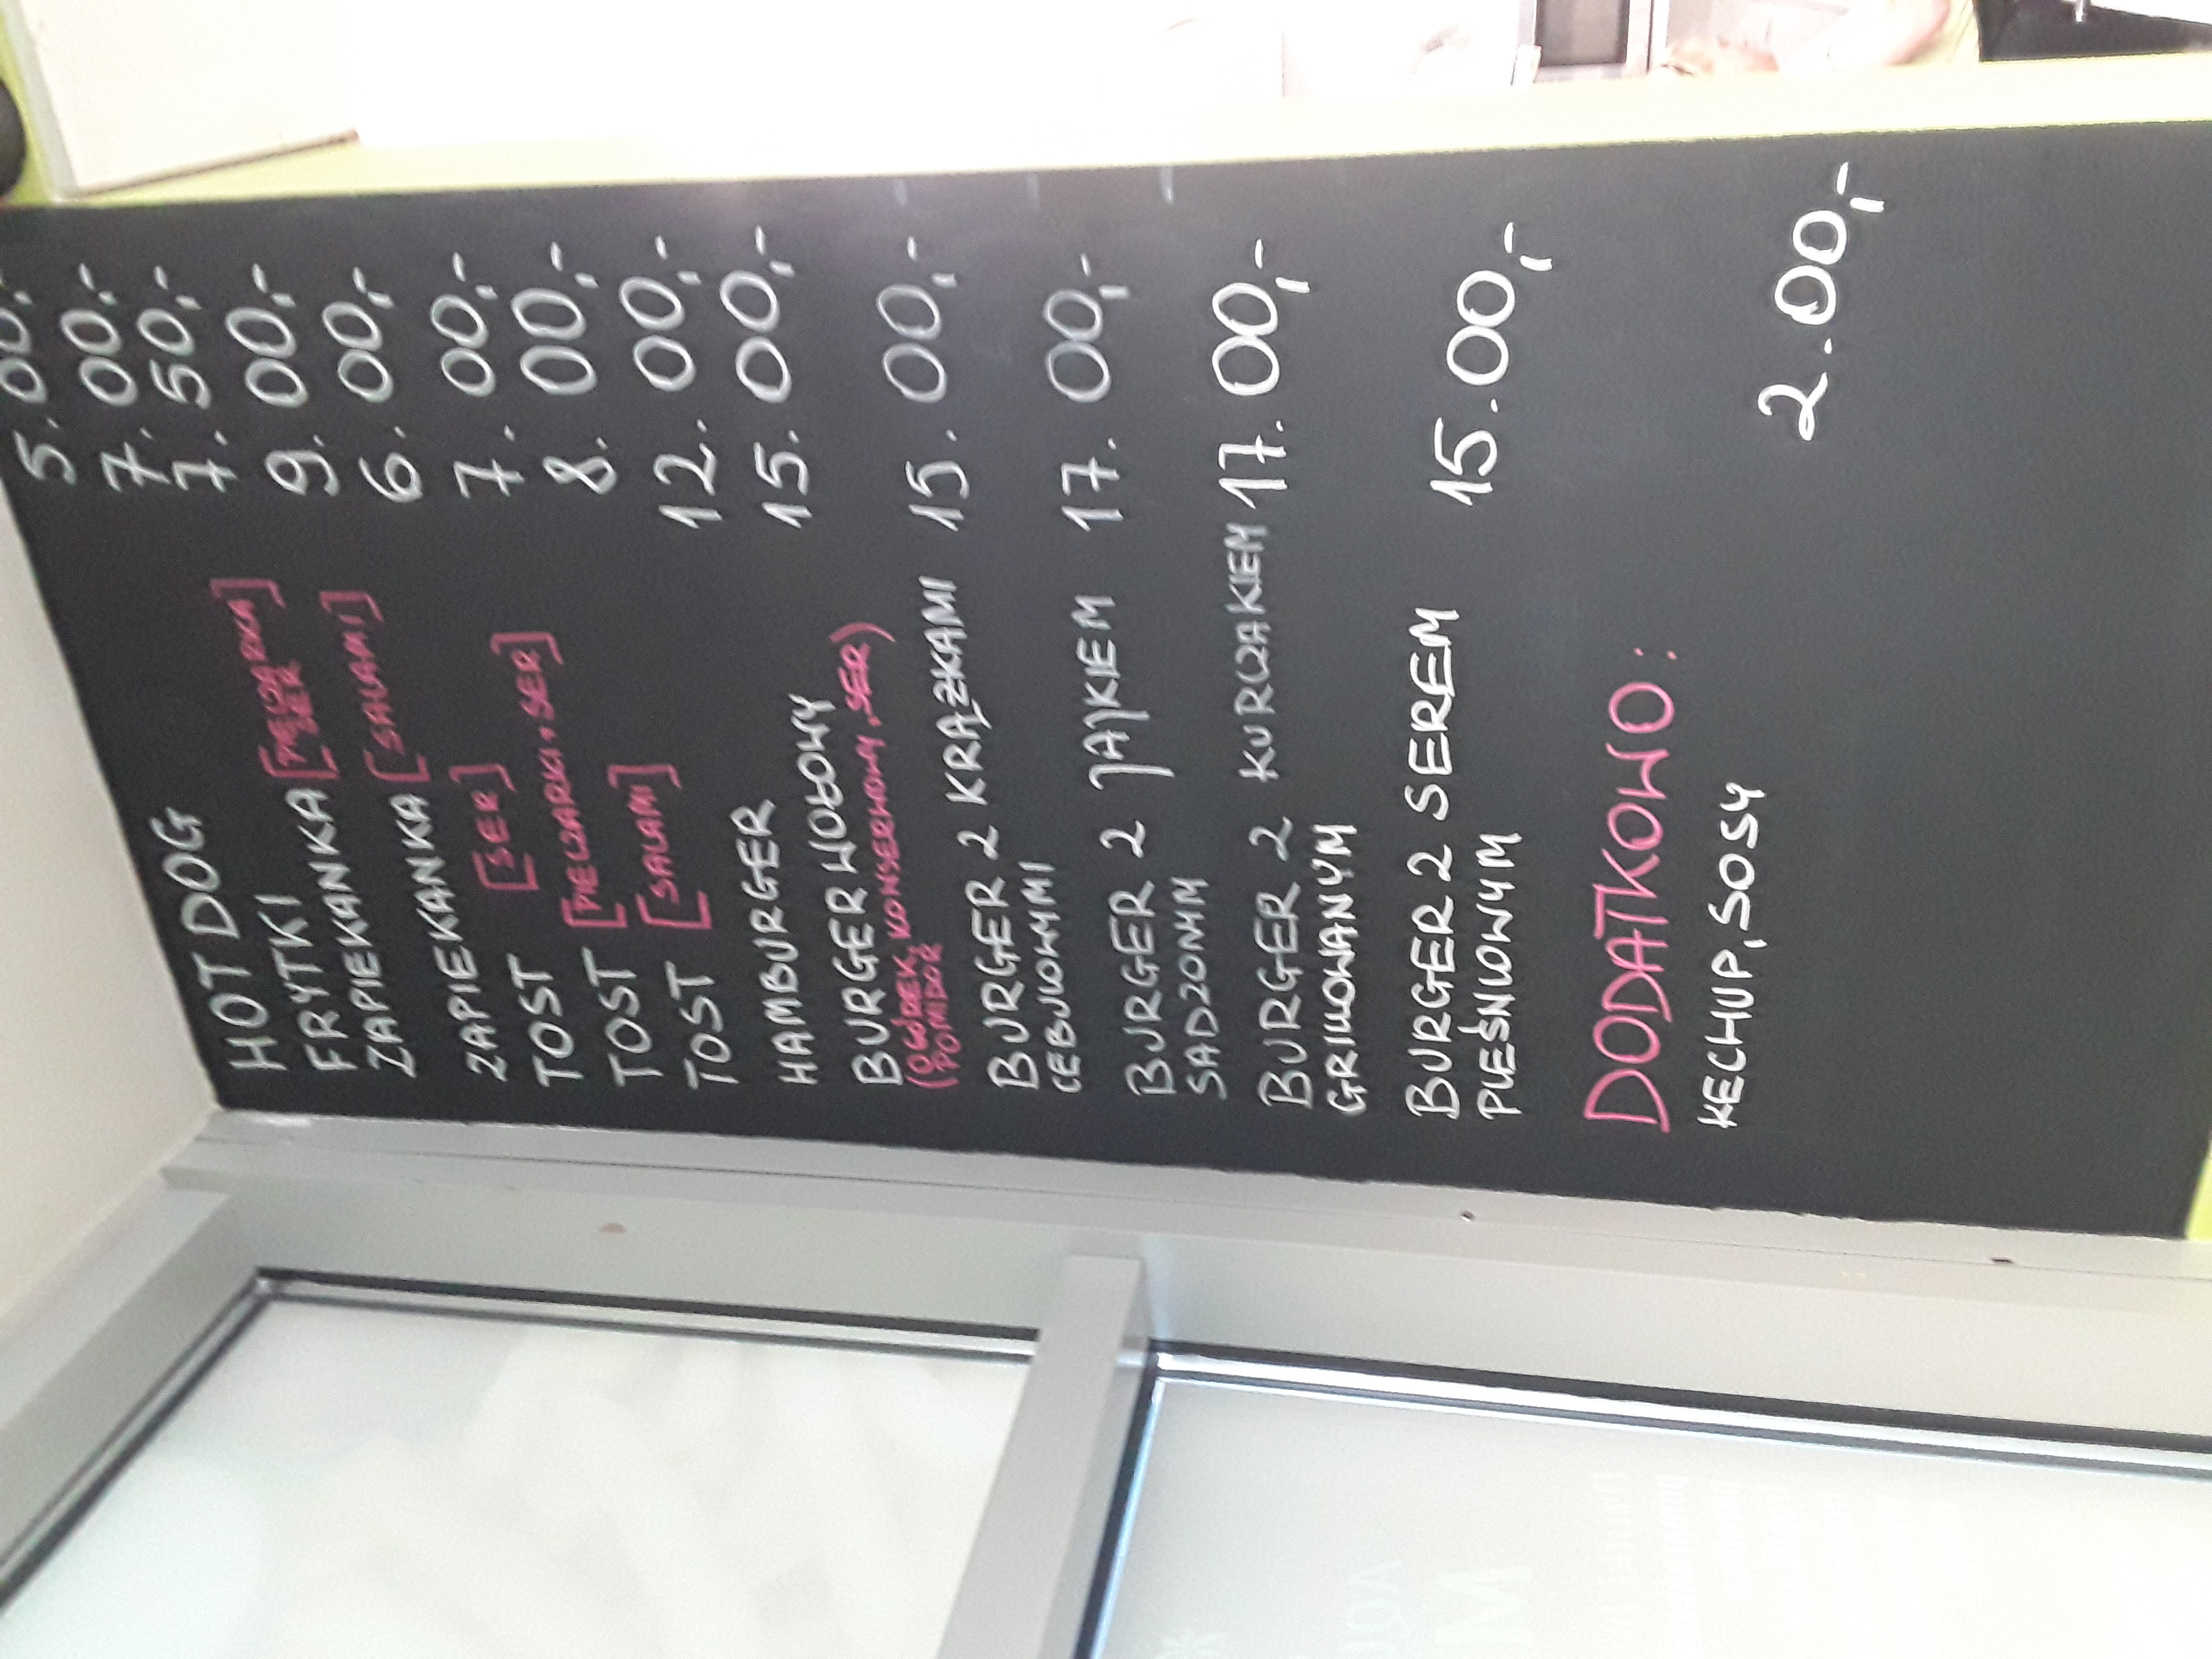 HOT DOG 5.00,-
FRYTKI 7.00,-
ZAPIEKANKA [PIECZARKA 7.50,-
SER]
ZAPIEKANKA [SALAMI] 9.00,-
TOST [SER] 6.00,-
TOST [PIECZARKI+SER] 7.00,-
TOST [SALAMI] 8.00,-
HAMBURGER 12.00,-
BURGER WOŁOWY 15.00,-
(OGÓREK KONSERWOWY, SER)
POMIDOR
BURGER Z KRĄŻKAMI 15.00,-
CEBULOWYMI
BURGER Z JAJKIEM 17.00,-
SADZONYM
BURGER Z KURCZAKIEM 17.00,-
GRILLOWANYM
BURGER Z SEREM 15.00,-
PLEŚNIOWYM
DODATKOWO:
KECHUP, SOSY 2.00,-